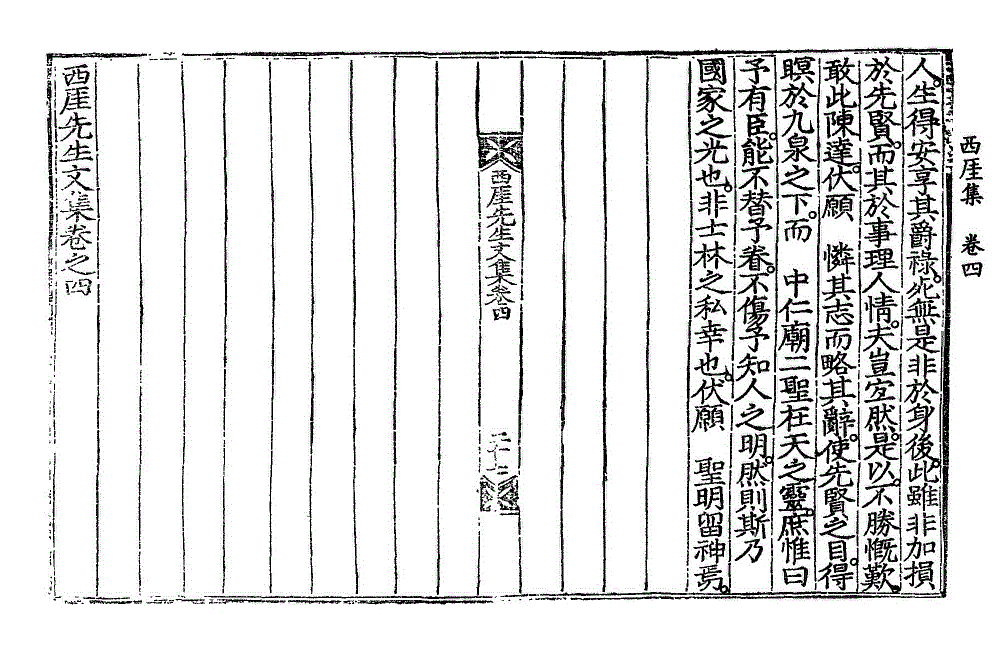 西厓集　卷四
人。生得安享其爵祿。死無是非於身後。此雖非加損
於先賢。而其於事理人情。夫豈宜然。是以。不勝慨歎。
敢此陳達。伏願　憐其志而略其辭。使先賢之目。得
瞑於九泉之下。而　中仁廟二聖在天之靈。庶惟曰
予有臣。能不替予眷。不傷予知人之明。然則斯乃
國家之光也。非士林之私幸也。伏願　聖明留神焉。
西厓先生文集卷四
西厓先生文集卷之四